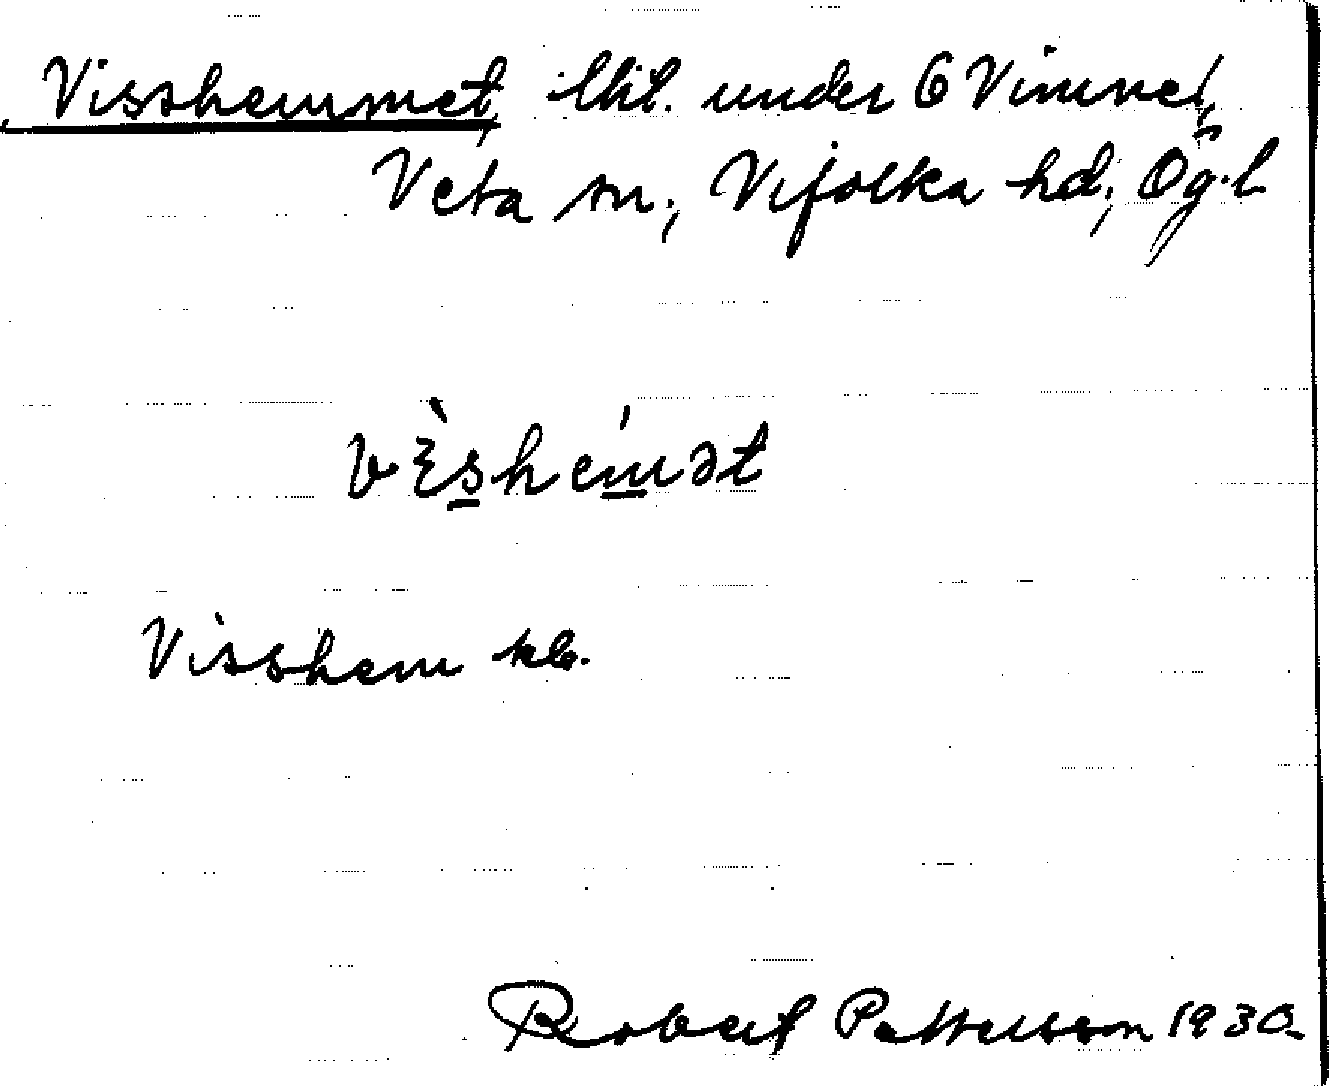 Visshemmet, lht. under 6 Vimne,
Veta sn., Vifolka hd., Ög.l
vɛ̀shémət
Visshem kb.
Robert Pettersson 1930